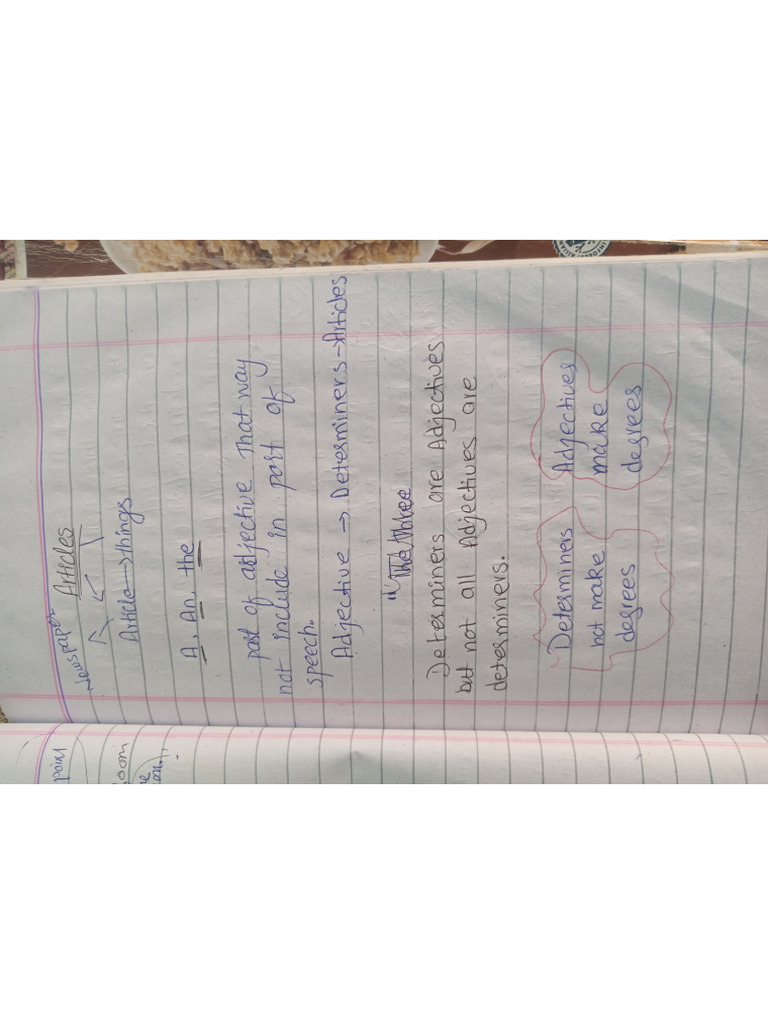 Newspaper Articles
Article → things
A, An, the
part of adjective That way
not include in part of
speech.
Adjective → Determiners → Articles
Determiners are Adjectives
but not all Adjectives are
determiners.
Determiners
not make
degrees
Adjectives
make
degrees
point